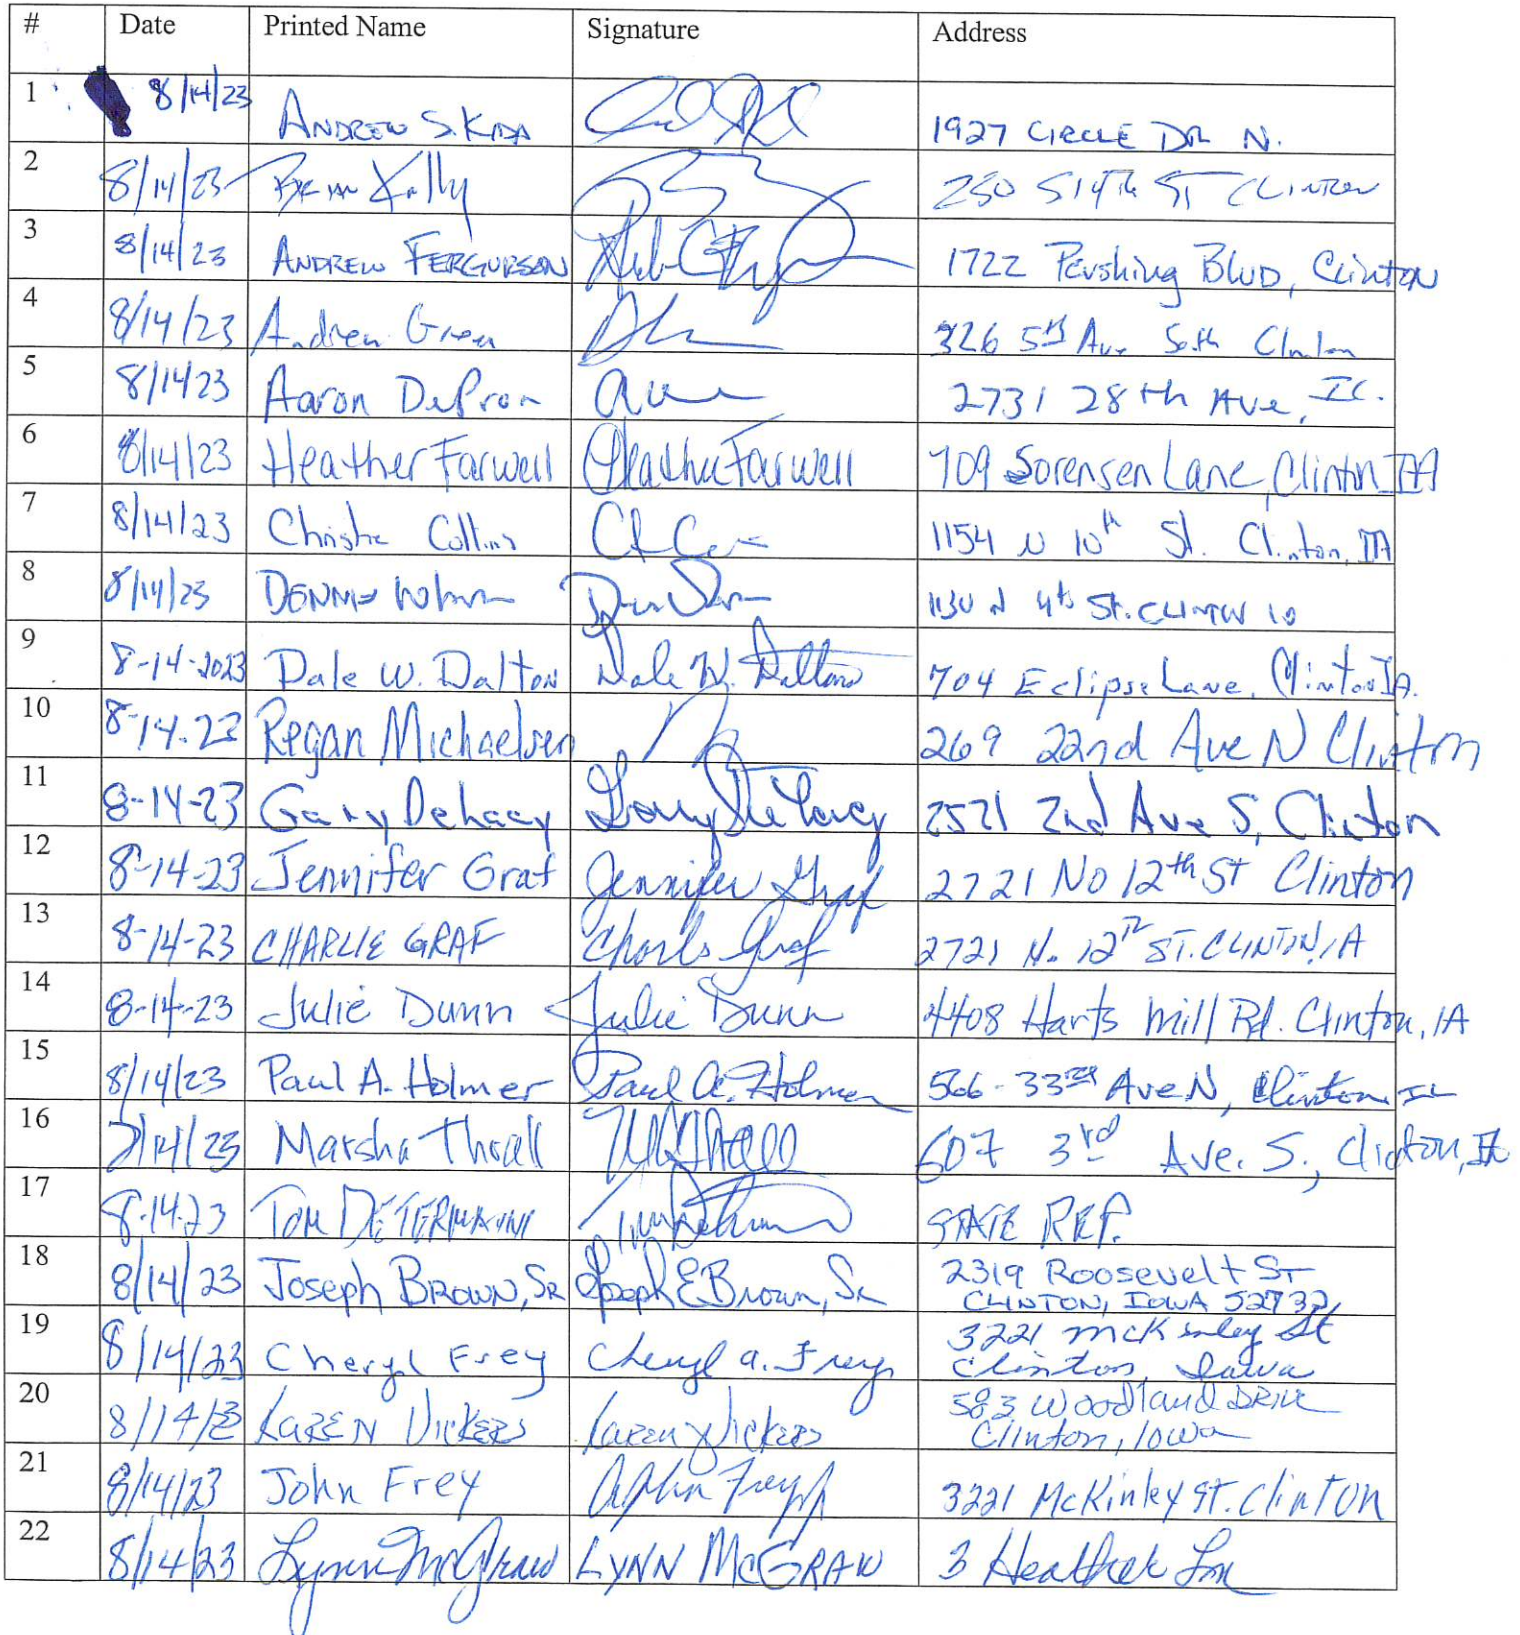 # Date Printed Name Signature Address
1 8/14/23 ANDREW S. KIDA 1927 CIRCLE DR N.
2 8/14/23 Brian Kelly 250 S 14th ST CLINTON
3 8/14/23 ANDREW FERGURSON 1722 Pershing BLVD, Clinton
4 8/14/23 Andrew Green 326 5th Ave South Clinton
5 8/14/23 Aaron 2731 28th Ave,
6 8/14/23 Heather Farwell Heather Farwell 709 Sorensen Lane, Clinton IA
7 8/14/23 Collins 1154 N 10th St. Clinton, IA
8 8/14/23 DENNIS 1130 N 4th St. CLINTON
9 8-14-2023 Dale W. Dalton Dale W. Dalton 704 Eclipse Lane, Clinton IA.
10 8-14-23 Regan Michaelsen 269 22nd Ave N Clinton
11 8-14-23 Gary Dehaay Gary 2nd Ave S, Clinton
12 8-14-23 Jennifer Graf Jennifer Graf 2721 No 12th ST Clinton
13 8-14-23 CHARLIE GRAF Charls Graf 2721 N. 12TH ST. CLINTON, IA
14 8-14-23 Julie Dunn Julie Dunn 4408 Harts Mill Rd. Clinton, IA
15 8/14/23 Paul A. Holmer Paul A. Holmer 566-33rd Ave N, Clinton
16 8/14/23 Marsha Thrall 607 3rd Ave. S., Clinton, IA
17 8.14.23 TOM DETERMANN STATE REP.
18 8/14/23 Joseph BROWN, SR Joseph E Brown, Sr 2319 Roosevelt ST
CLINTON, IOWA 52732
19 8/14/23 Cheryl Frey Cheryl A. Frey 3221 McKinley St
Clinton, Iowa
20 8/14/23 KAREN VICKERS Karen Vickers 583 Woodland DRIVE
Clinton, Iowa
21 8/14/23 John Frey John Frey 3221 McKinley ST. Clinton
22 8/14/23 Lynn McGraw LYNN McGRAW 3 Heather Ln